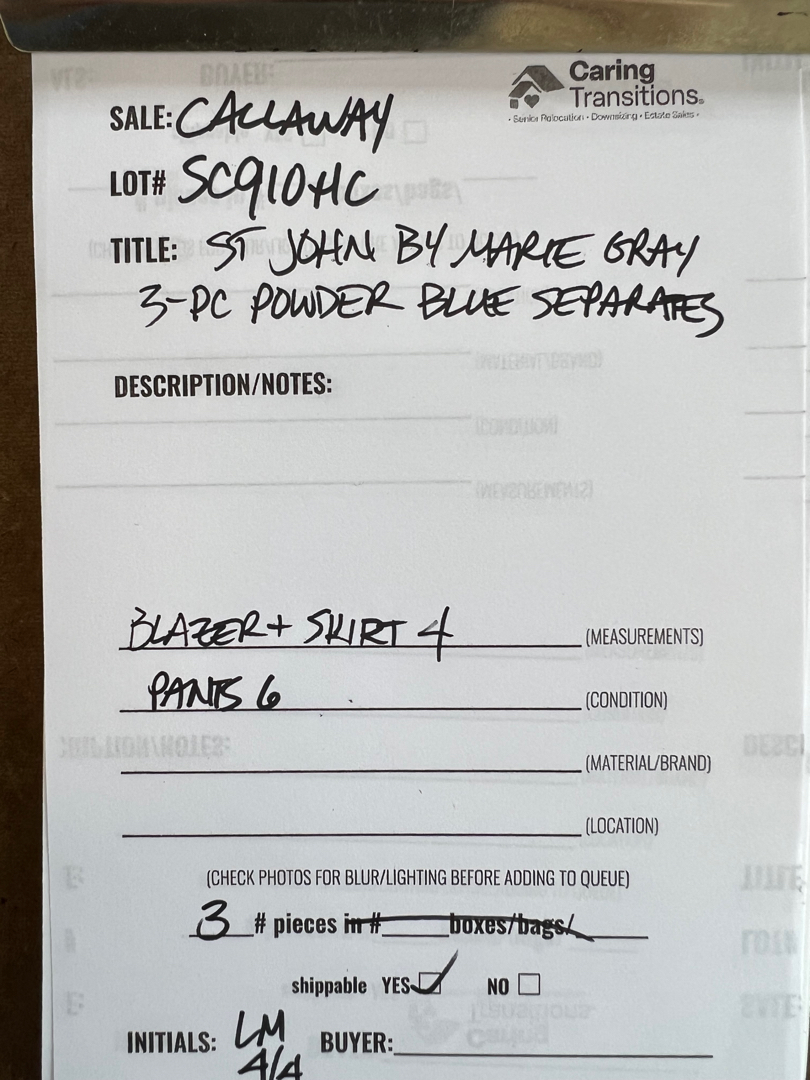 Caring
Transitions®
• Senior Relocation • Downsizing • Estate Sales •
SALE: CALLAWAY
LOT# SC910HC
TITLE: ST JOHN BY MARIE GRAY
3-PC POWDER BLUE SEPARATES
DESCRIPTION/NOTES:
BLAZER + SKIRT 4 (MEASUREMENTS)
PANTS 6 (CONDITION)
(MATERIAL/BRAND)
(LOCATION)
(CHECK PHOTOS FOR BLUR/LIGHTING BEFORE ADDING TO QUEUE)
3 # pieces in # boxes/bags/
shippable YES NO
INITIALS: LM BUYER:
4/4